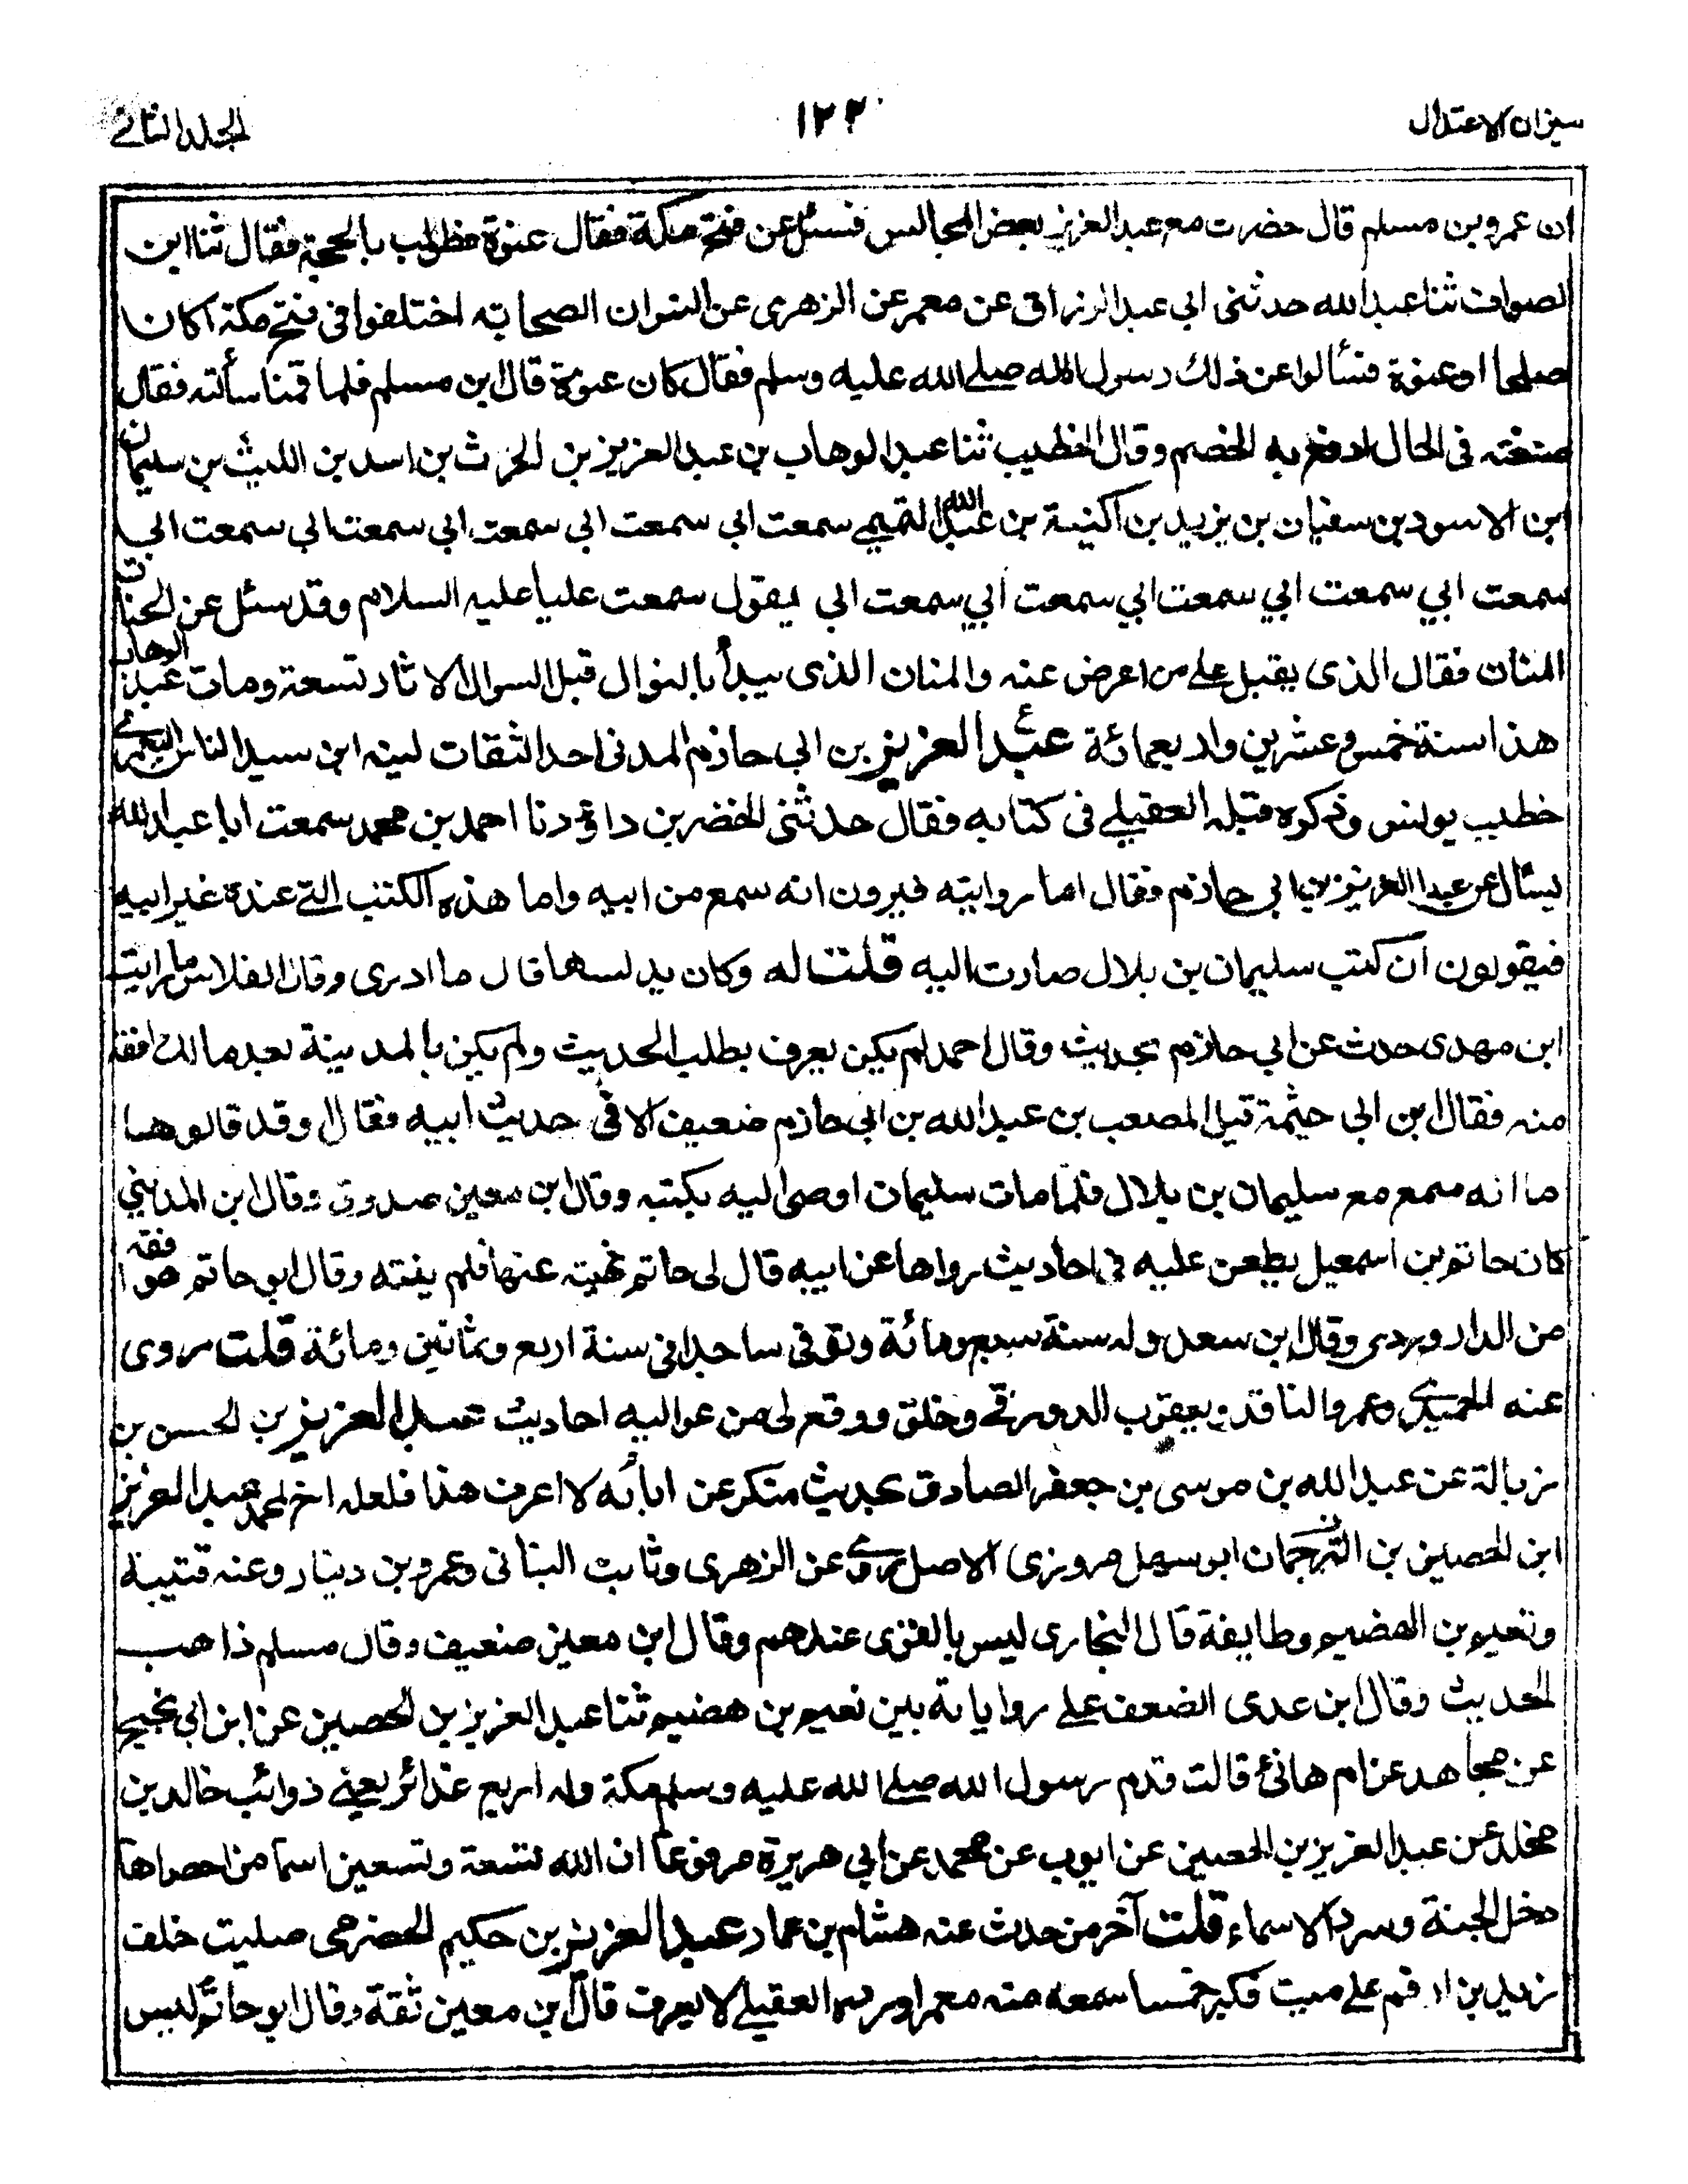 ميزان الاعتدال
١٢٢
الجلد الثاني
ان عمرو بن مسلم قال حضرت مع عبد العزيز بعض المجالس فسئل عن فتح مكة فقال عنوة فطولب بالحجة فقال ثنا ابن
الصواف ثنا عبد الله حدثنى ابي عبد الرزاق عن معمر عن الزهرى عن انس ان الصحابة اختلفوا فى فتح مكة اكان
صلحا او عنوة فسألوا عن ذلك رسول الله صلى الله عليه وسلم فقال كان عنوة قال ابن مسلم فلما قمنا سألته فقال
صنعته فى الحال ادفع به الخصم وقال الخطيب ثنا عبد الوهاب بن عبد العزيز بن الحرث بن اسد بن الليث بن سليمان
ابن الاسود بن سفيان بن يزيد بن اكينة بن عبد الله التميمي سمعت ابي سمعت ابي سمعت ابي سمعت ابي سمعت ابي
سمعت ابي سمعت ابي سمعت ابي سمعت ابي سمعت ابي يقول سمعت عليا عليه السلام وقد سئل عن الحنان
المنان فقال الذى يقبل على من اعرض عنه والمنان الذى يبدأ بالنوال قبل السوال الاثار تسعة ومات عبد الوهاب
هذا سنة خمس وعشرين واربعمائة عبد العزيز بن ابي حازم المدنى احد الثقات لينه ابن سيد الناس اليعمرى
خطيب يونس وذكره قبله العقيلى فى كتابه فقال حدثنى الخضر بن داؤد نا احمد بن محمد سمعت ابا عبد الله
يسأل عن عبد العزيز بن ابي حازم فقال اما روايته فيرون انه سمع من ابيه واما هذه الكتب التى عنده غير ابيه
فيقولون ان كتب سليمان بن بلال صارت اليه قلت له وكان يدلسها قال ما ادرى وقال الفلاس ما رايت
ابن مهدى حدث عن ابي حازم بحديث وقال احمد لم يكن يعرف بطلب الحديث ولم يكن بالمدينة بعد مالك افقه
منه فقال ابن ابي خيثمة قيل المصعب بن عبد الله بن ابي حازم ضعيف الا فى حديث ابيه فقال وقد قالوها
ما انه سمع مع سليمان بن بلال فلما مات سليمان اوصى اليه بكتبه وقال ابن معين صدوق وقال ابن المديني
كان حاتم بن اسمعيل يطعن عليه فى احاديث رواها عن ابيه قال لى حاتم نهيته عنها فلم ينته وقال ابو حاتم هو افقه
من الدراوردى وقال ابن سعد ولد سنة سبع ومائة وتوفى ساجدا فى سنة اربع وثمانين ومائة قلت روى
عنه الحميدي وعمرو الناقد ويعقوب الدورقى وخلق ووقع لى من عواليه احاديث عبد العزيز بن الحسن بن
زبالة عن عبد الله بن موسى بن جعفر الصادق بحديث منكر عن ابائه لا اعرف هذا فلعله اخ لمحمد عبد العزيز
ابن الحصين بن الترجمان ابو سهل مروزى الاصل روى عن الزهرى وثابت البنانى وعمرو بن دينار وعنه قتيبة
ونعيم بن الهضيم وطايفة قال البخارى ليس بالقوى عندهم وقال ابن معين ضعيف وقال مسلم ذاهب
الحديث وقال ابن عدى الضعف على رواياته بين نعيم بن هضيم ثنا عبد العزيز بن الحصين عن ابن ابي نجيح
عن مجاهد عن ام هانئ قالت قدم رسول الله صلى الله عليه وسلم مكة وله اربع غدائر يعنى ذوائب خالد بن
مخلد عن عبد العزيز بن الحصين عن ايوب عن محمد عن ابي هريرة مرفوعا ان الله تسعة وتسعين اسما من احصاها
دخل الجنة وسرد الاسماء قلت آخر من حدث عنه هشام بن عمار عبد العزيز بن حكيم الحضرمى صليت خلف
زيد بن ارقم على ميت فكبر خمسا سمعه منه معمر العقيلى لا يعرف قال ابن معين ثقة وقال ابو حاتم ليس